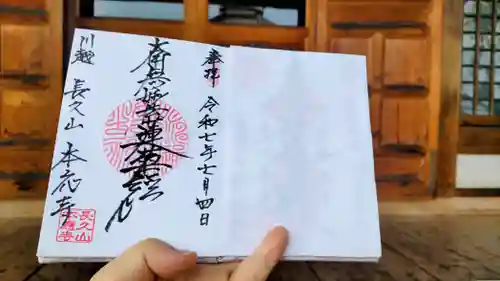 奉拝
令和七年七月四日
南無妙法蓮華経
川越
長久山 本応寺
長久山
本應寺